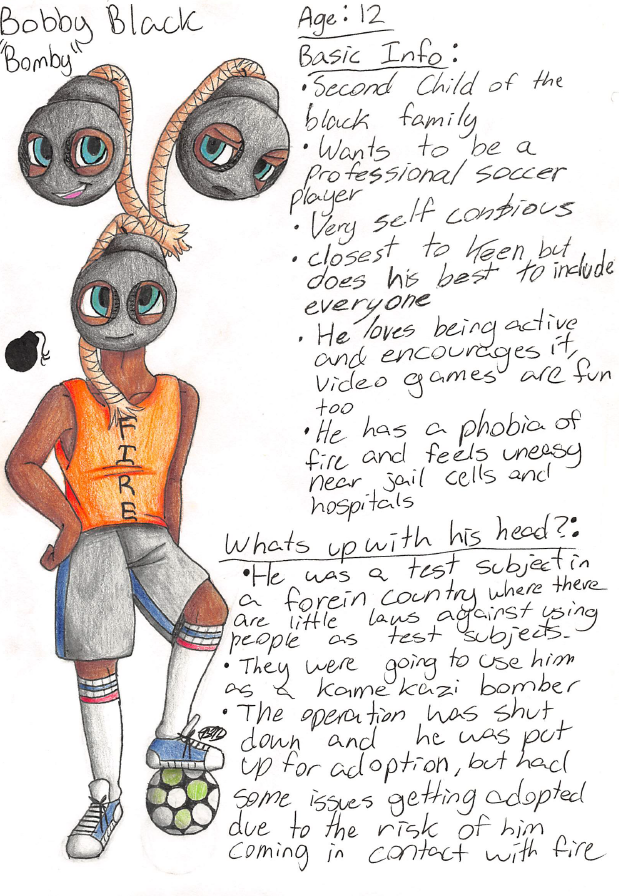 Bobby Black
"Bomby"
Age: 12
Basic Info:
• Second Child of the
black family
• Wants to be a
Professional soccer
player
• Very self contious
• closest to Keen but
does his best to include
everyone
• He loves being active
and encourages it,
video games are fun
too
• He has a phobia of
fire and feels uneasy
near jail cells and
hospitals
FIRE
Whats up with his head?:
• He was a test subject in
a forein country where there
are little laws against using
people as test subjects.
• They were going to use him
as a kamekazi bomber
• The operation was shut
down and he was put
up for adoption, but had
some issues getting adopted
due to the risk of him
coming in contact with fire